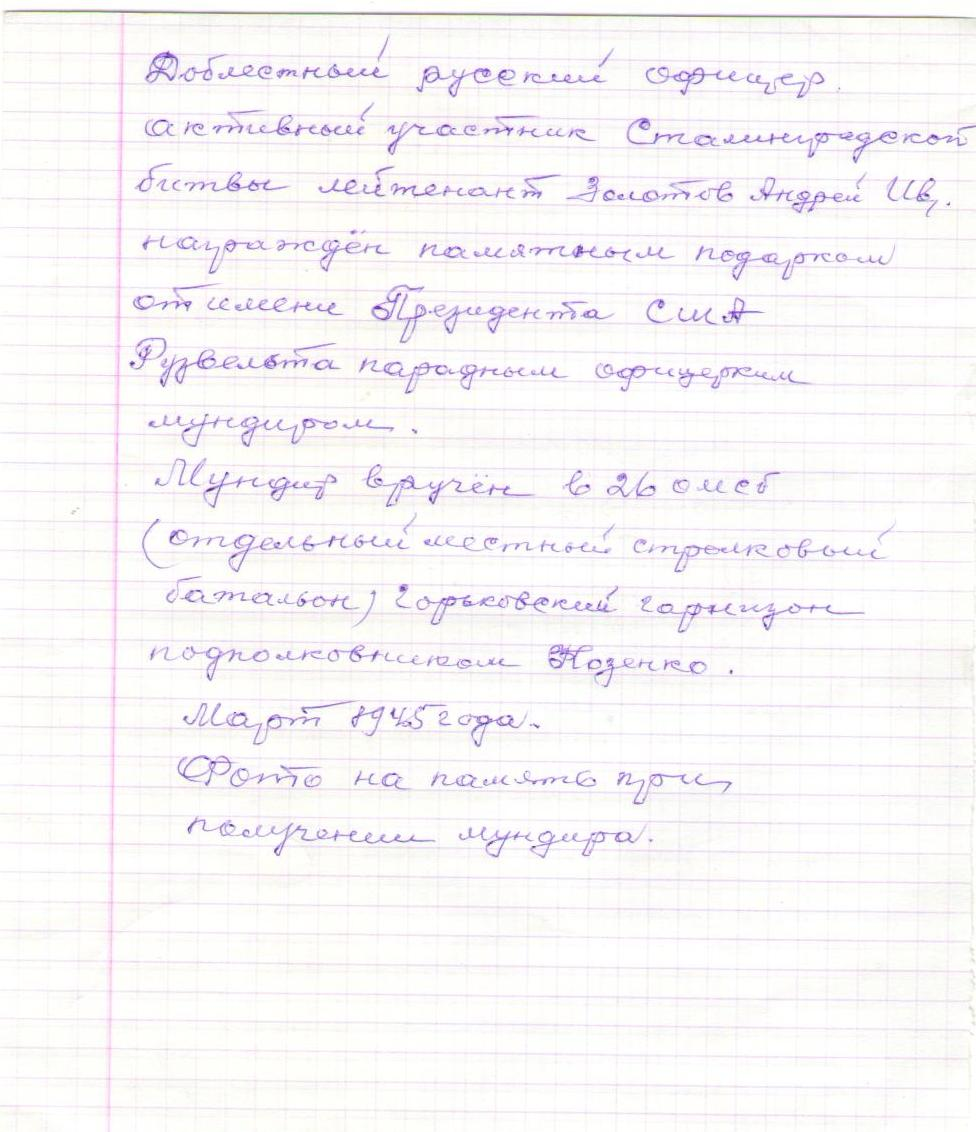 Доблестный русский офицер.
активный участник Сталинградской
битвы лейтенант Золотов Андрей Ив.
награждён памятным подарком
от имени Президента США
Рузвельта парадным офицерким
мундиром.
Мундир вручён в 26 омсб
(отдельный местный стрелковый
батальон) Горьковский гарнизон
подполковником Козенко.
Март 1945 года.
Фото на память при
получении мундира.